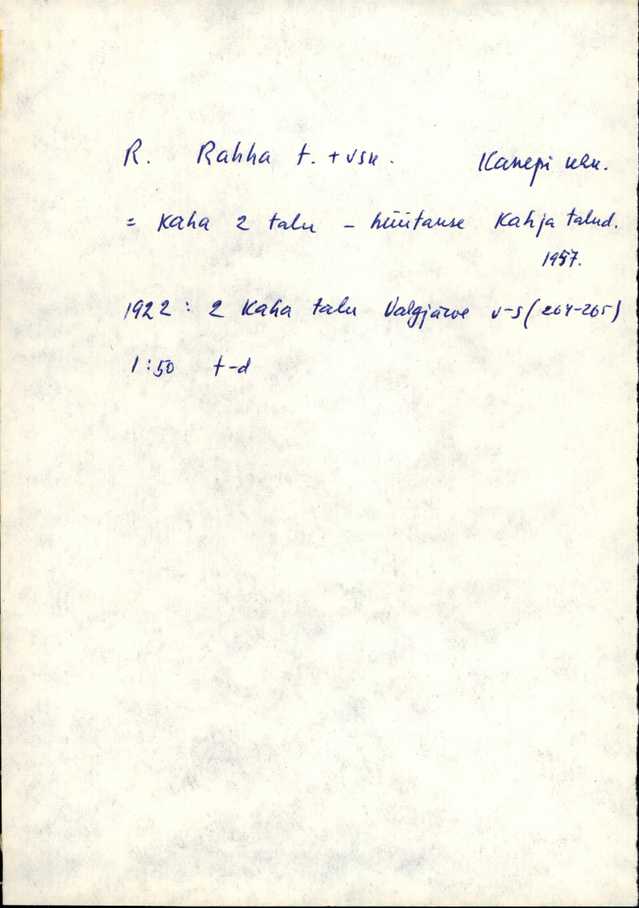 R. Rahha t. + vsk. Kanepi khk.
= Kaha 2 talu - hüütanse Kahja talud.
1957.
1922: 2 Kaha talu Valgjärve v-s (264-265)
1:50 t-d